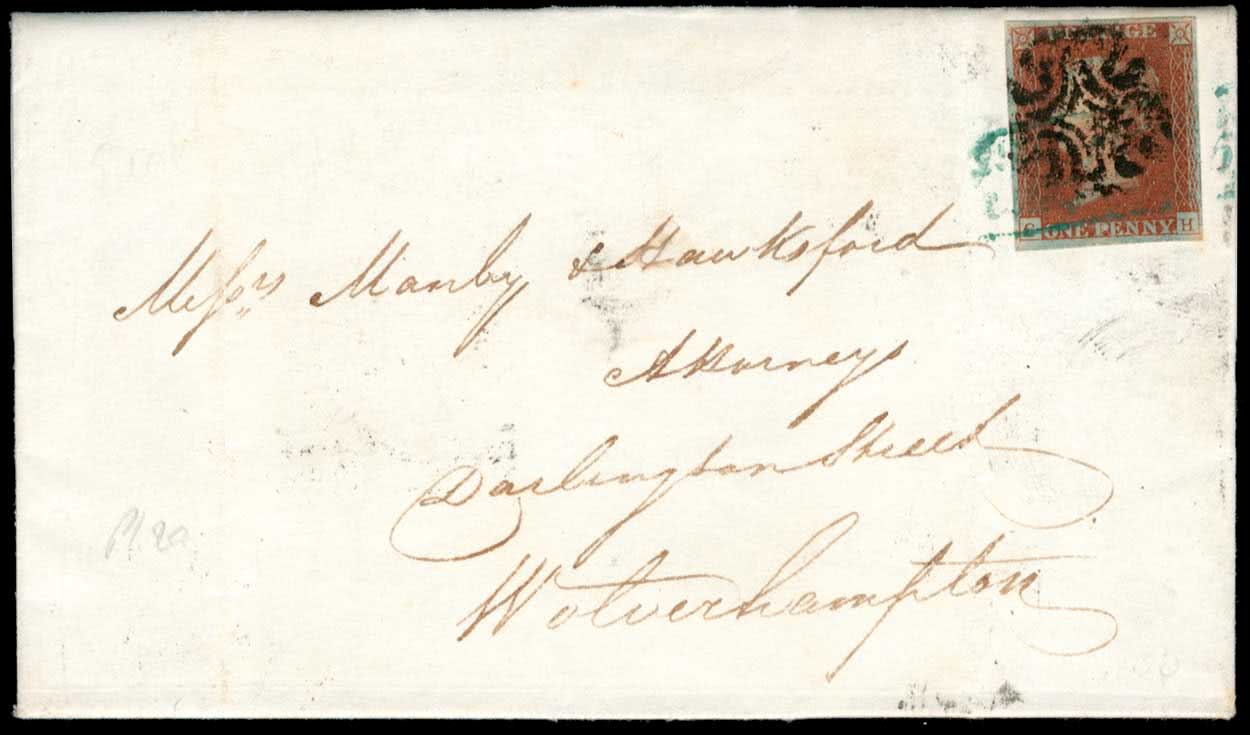 POSTAGE
C ONE PENNY H
Messrs Manby & Hawksford
Attorneys
Darlington Street
Wolverhampton